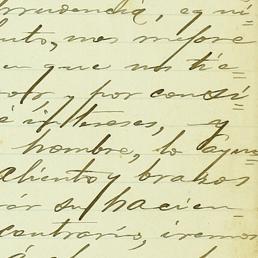 prudencia, equi=
nto, nos refore
en que nos tie=
por consi=
é intereses, y
hombre, lo ayu
aliento y brazos
rár su hacien=
contrario, iremos